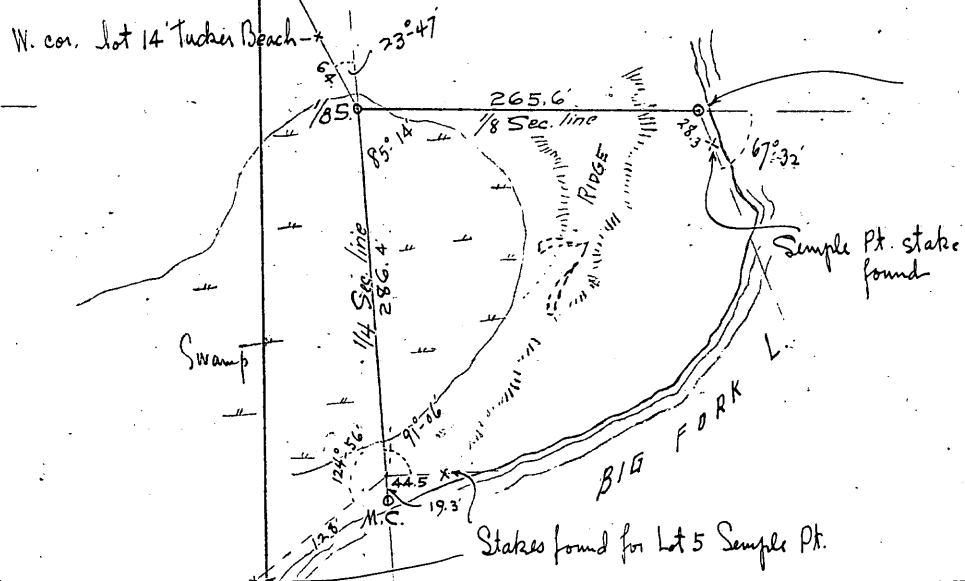 W. cor. lot 14 Tucker Beach
23°-47'
64
1/8 S.
265.6'
1/8 Sec. line
85°-14'
28.3
67°-32'
RIDGE
Semple Pt. stake
found
1/4 Sec. line
286.4
Swamp
124°-56'
91°-06'
44.5
19.3'
M.C.
12.8'
BIG FORK L.
Stakes found for Lot 5 Semple Pt.